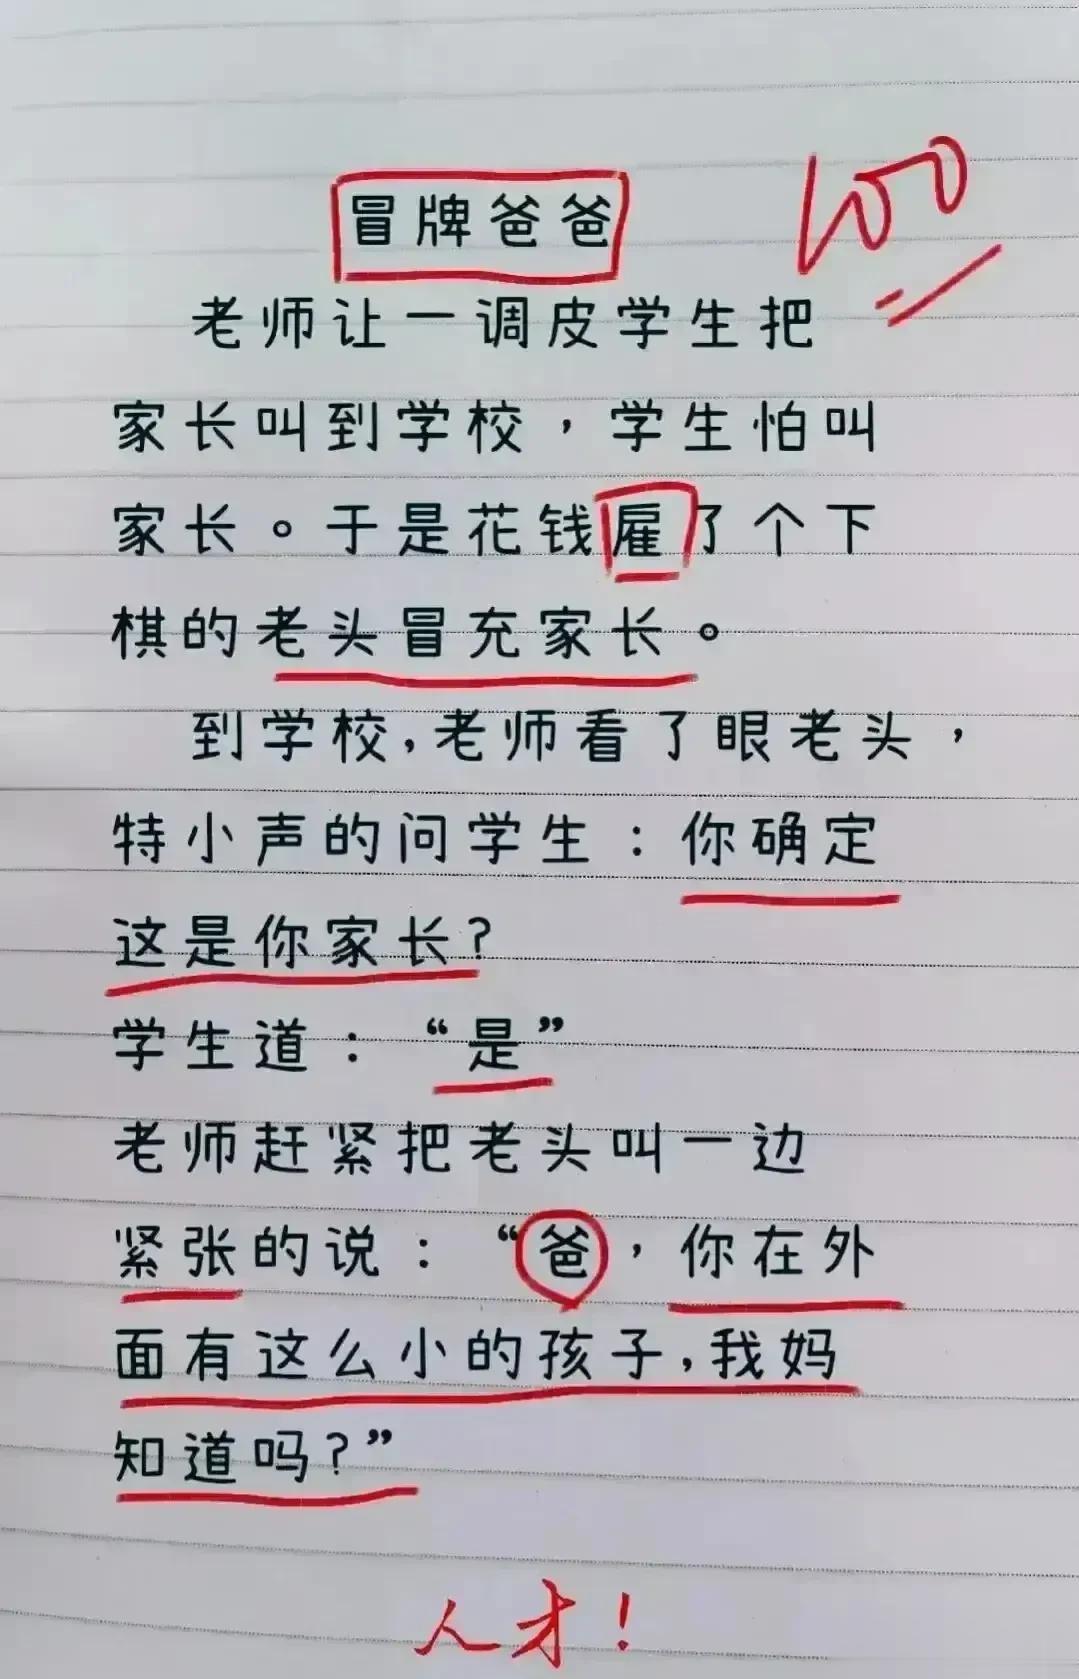 冒牌爸爸
100
老师让一调皮学生把
家长叫到学校，学生怕叫
家长。于是花钱雇了个下
棋的老头冒充家长。
到学校,老师看了眼老头，
特小声的问学生：你确定
这是你家长?
学生道：“是”
老师赶紧把老头叫一边
紧张的说：“爸，你在外
面有这么小的孩子,我妈
知道吗?”
人才!